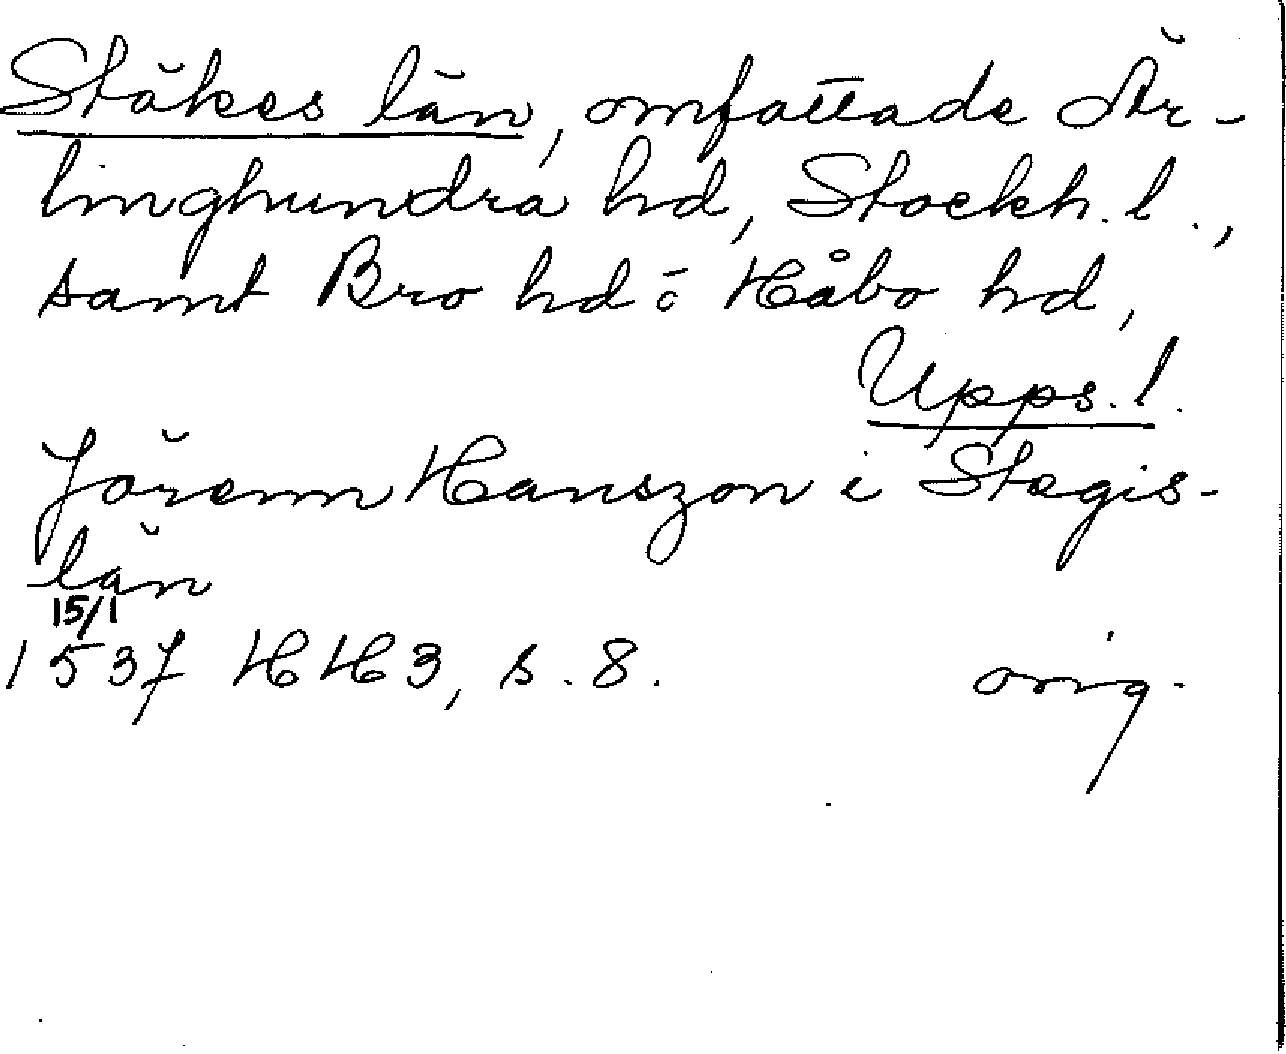 Stäkes län, omfattade Är-
linghundra hd, Stockh. l.,
samt Bro hd o Håbo hd,
Upps. l.
Jörenn Hanszon i Stegis-
län
15/1
1537 HH3, s. 8. orig.